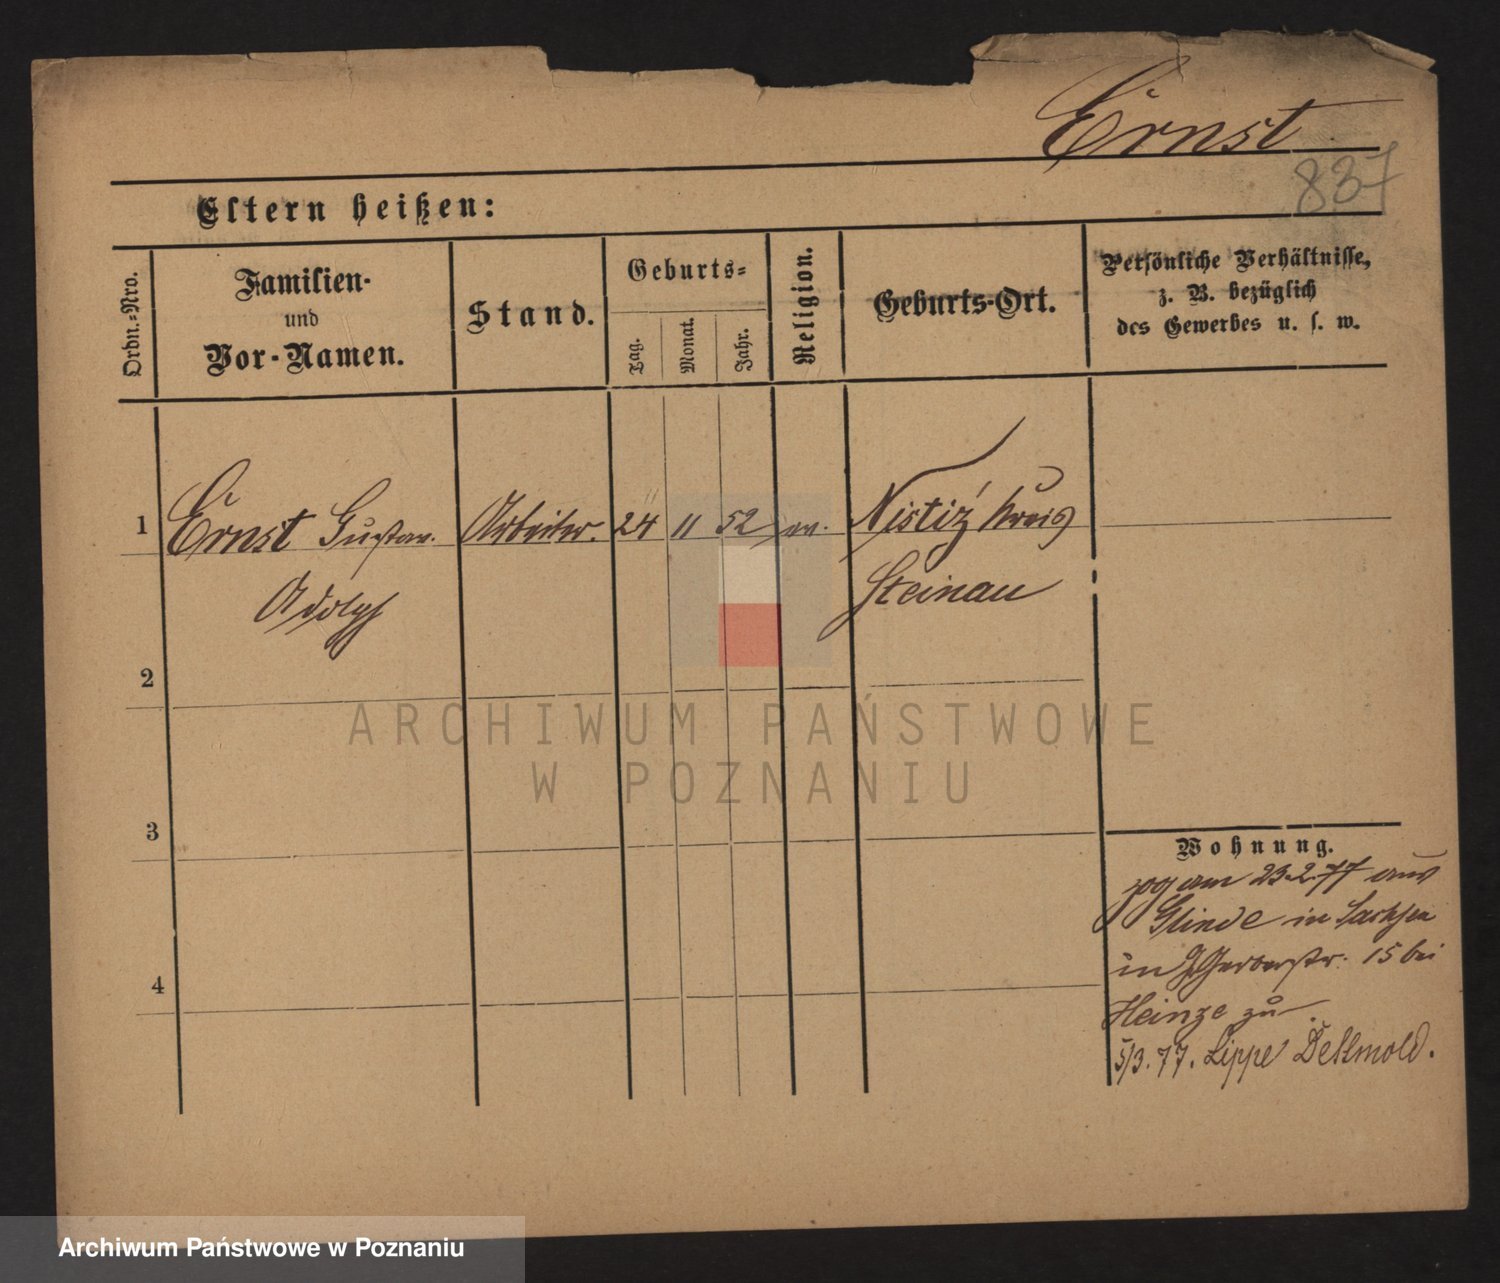 Ernst
837
Eltern heißen:
Ordn.-Nro.
Familien-
und
Vor-Namen.
Stand.
Geburts-
Tag.
Monat.
Jahr.
Religion.
Geburts-Ort.
Persönliche Verhältnisse,
z. B. bezüglich
des Gewerbes u. s. w.
1 Ernst Gustav Arbeiter. 24 11 52 ev. Kreis
Adolph Steinau
2
3
4
ARCHIWUM PAŃSTWOWE
W POZNANIU
Wohnung.
zog am 23.2.77 aus
Glinde in Sachsen
in Gr. Gerberstr. 15 bei
Heinze zu
5/3. 77. Lippe Detmold.
Archiwum Państwowe w Poznaniu